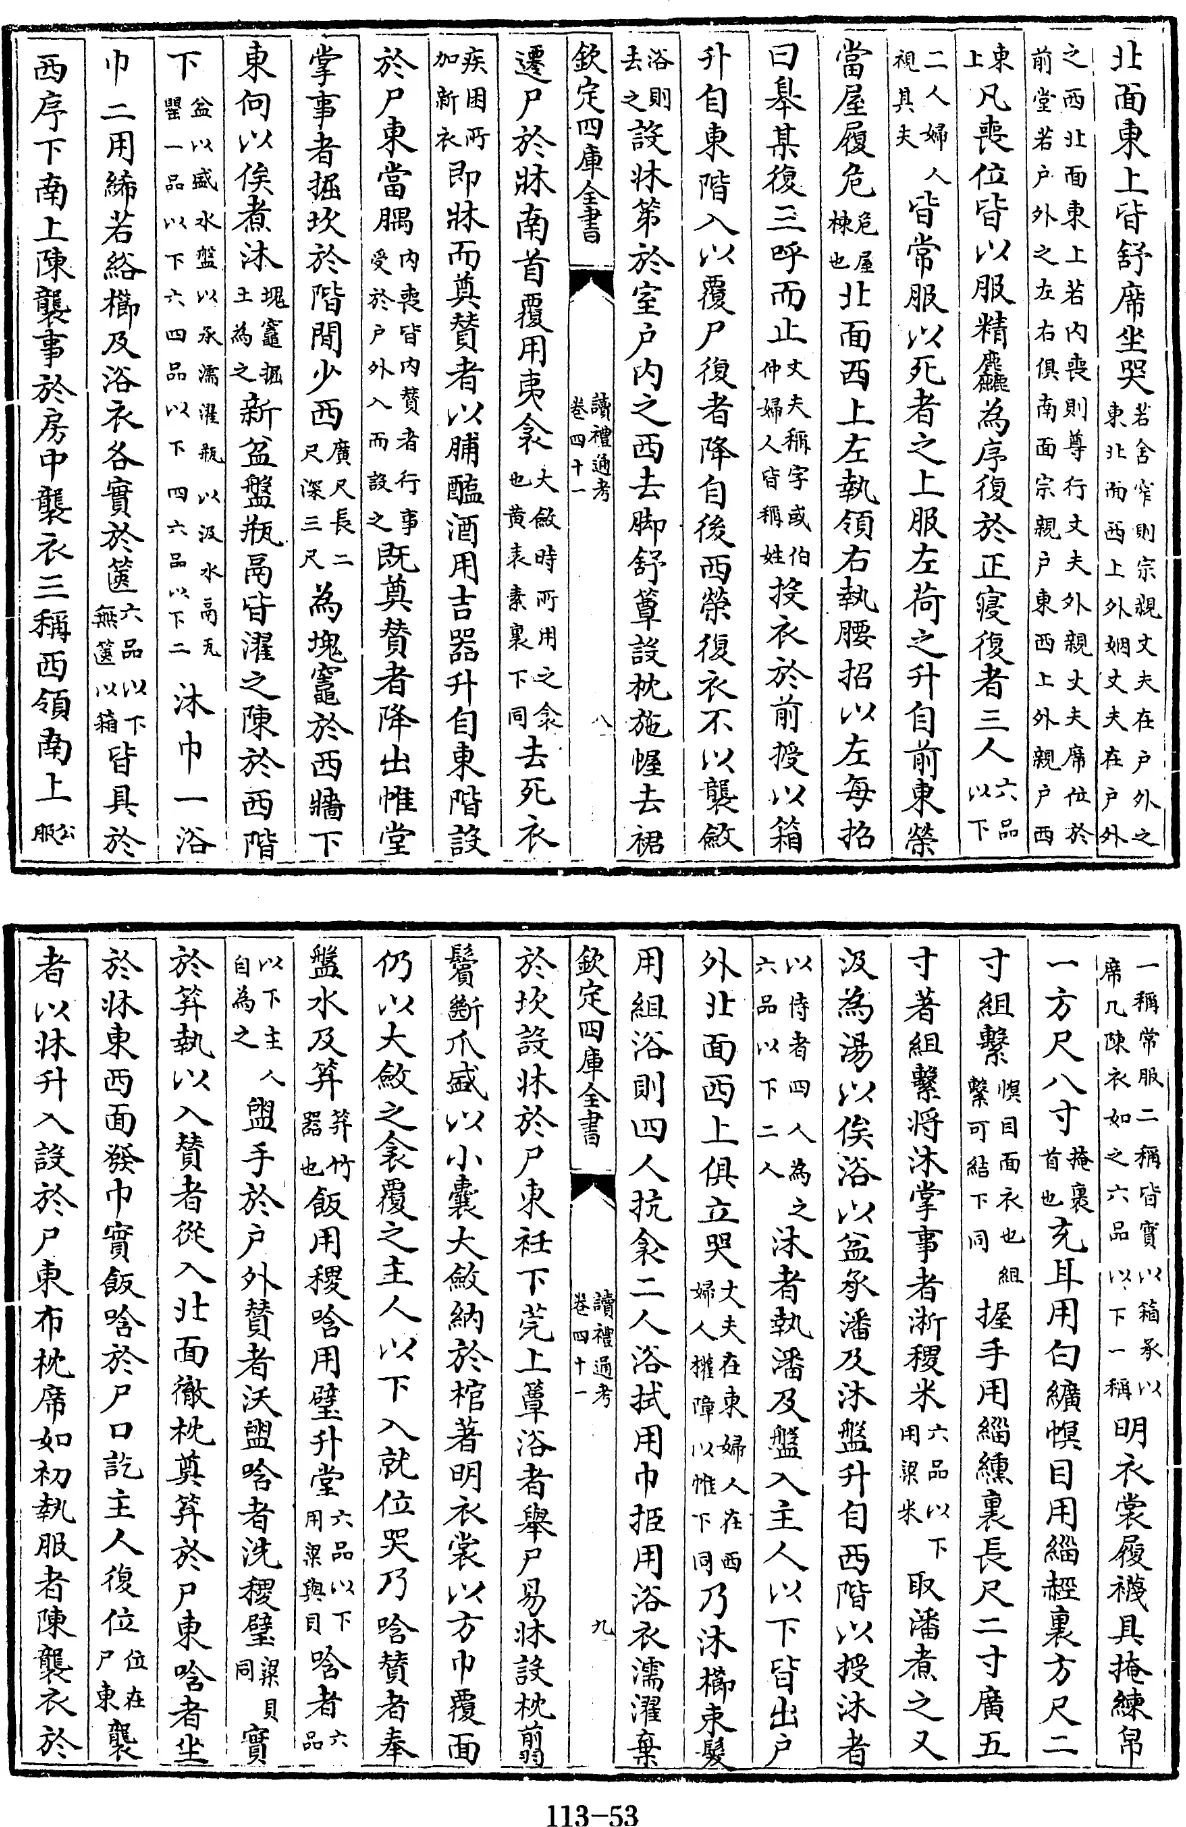 北面東上皆舒席坐哭若舍窄則宗親丈夫在戶外之東北面西上外姻丈夫在戶外
之西北面東上若內喪則尊行丈夫外親丈夫席位於前堂若戶外之左右俱南面宗親戶東西上外親戶西
東上凡喪位皆以服精麤為序復於正寢復者三人六品以下
二人婦人視其夫皆常服以死者之上服左荷之升自前東榮
當屋履危危屋棟也北面西上左執領右執腰招以左每招
曰皋某復三呼而止丈夫稱字或伯仲婦人皆稱姓投衣於前授以箱
升自東階入以覆尸復者降自後西榮復衣不以襲斂
浴則去之設牀第於室戶內之西去脚舒簟設枕施幄去裙
欽定四庫全書 讀禮通考 卷四十一 八
遷尸於牀南首覆用夷衾大斂時所用之衾也黄表素裏下同去死衣
疾困所加新衣即牀而奠贊者以脯醢酒用吉器升自東階設
於尸東當腢內喪皆內贊者行事受於戶外入而設之既奠贊者降出帷堂
掌事者掘坎於階間少西廣尺長二尺深三尺為塊竈於西牆下
東向以俟煮沐塊竈掘土為之新盆盤瓶鬲皆濯之陳於西階
下盆以盛水盤以承濡濯瓶以汲水鬲瓦罌一品以下六四品以下四六品以下二沐巾一浴
巾二用絺若綌櫛及浴衣各實於篋六品以下無篋以箱皆具於
西序下南上陳襲事於房中襲衣三稱西領南上公服
一稱常服二稱皆實以箱承以席几陳衣如之六品以下一稱明衣裳履襪具掩練帛
一方尺八寸掩裹首也充耳用白纊幎目用緇䞓裏方尺二
寸組繫幎目面衣也組繫可結下同握手用緇纁裏長尺二寸廣五
寸著組繫將沐掌事者淅稷米六品以下用梁米取潘煮之又
汲為湯以俟浴以盆承潘及沐盤升自西階以授沐者
以侍者四人為之六品以下二人沐者執潘及盤入主人以下皆出戶
外北面西上俱立哭丈夫在東婦人在西婦人權障以帷下同乃沐櫛束髮
用組浴則四人抗衾二人浴拭用巾挋用浴衣濡濯棄
欽定四庫全書 讀禮通考 卷四十一 九
於坎設牀於尸東衽下莞上簟浴者舉尸易牀設枕翦
鬢斷爪盛以小囊大斂納於棺著明衣裳以方巾覆面
仍以大斂之衾覆之主人以下入就位哭乃唅贊者奉
盤水及笲笲竹器也飯用稷唅用璧升堂六品以下用梁與貝唅者六品
以下主人自為之盥手於戶外贊者沃盥唅者洗稷璧梁貝同實
於笲執以入贊者從入北面徹枕奠笲於尸東唅者坐
於牀東西面發巾實飯唅於尸口訖主人復位位在尸東襲
者以牀升入設於尸東布枕席如初執服者陳襲衣於
113-53